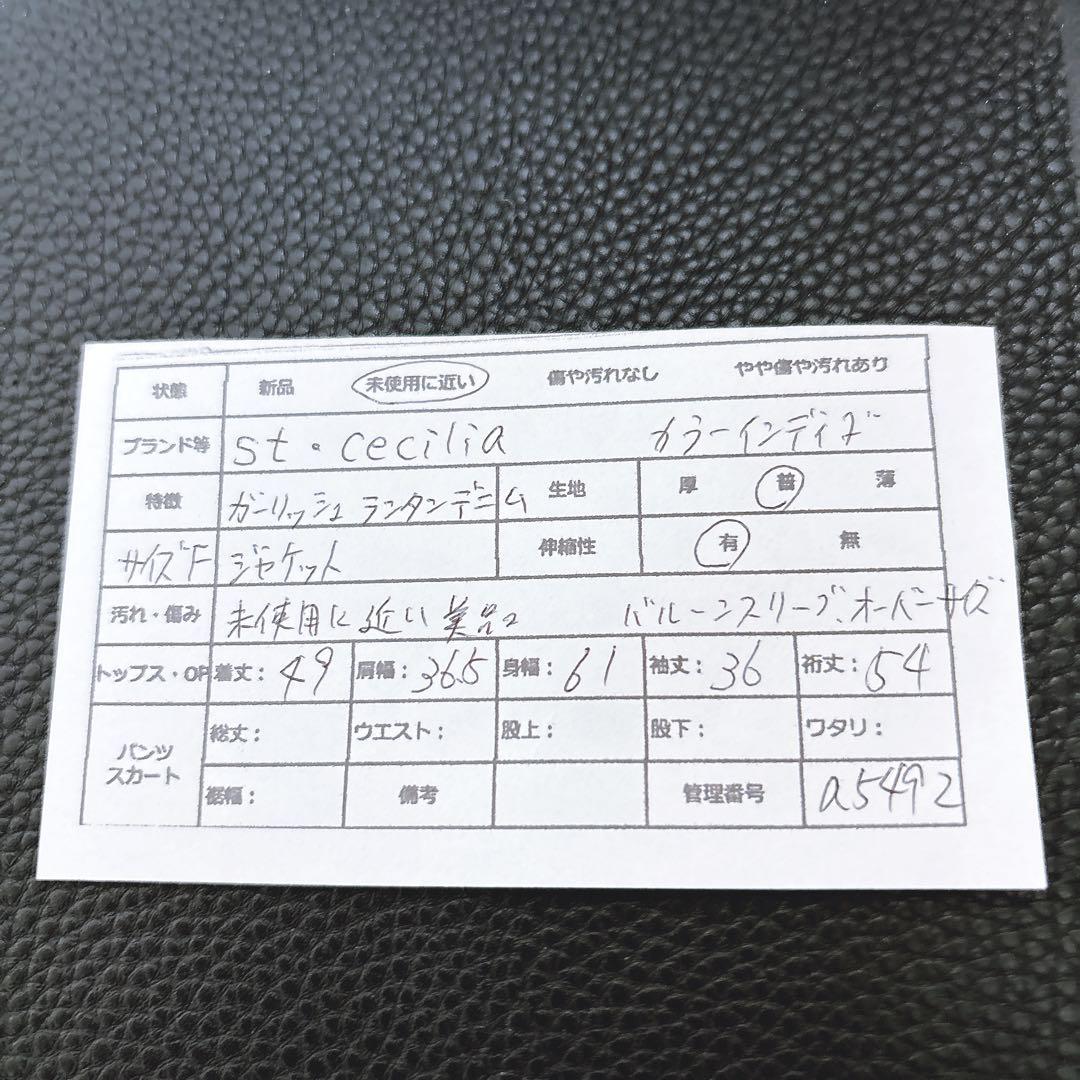 状態 新品 未使用に近い 傷や汚れなし やや傷や汚れあり
ブランド等 st・cecilia カラーインディゴ
特徴 ガーリッシュ ランタンデニム 生地 厚 普 薄
サイズF ジャケット 伸縮性 有 無
汚れ・傷み 未使用に近い美品。 バルーンスリーブ、オーバーサイズ
トップス・OP 着丈: 49 肩幅: 36.5 身幅: 61 袖丈: 36 裄丈: 54
パンツ スカート 総丈: ウエスト: 股上: 股下: ワタリ:
裾幅: 備考 管理番号 a5492